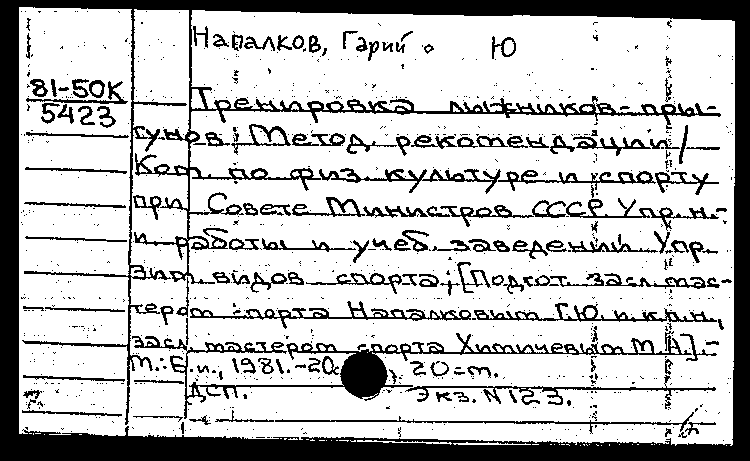 Напалков, Гарий Ю
81-50К
5423
Тренировка лыжников-пры-
гунов: Метод. рекомендации /
Ком. по физ. культуре и спорту
при Совете Министров СССР, Упр. н.-
и. работы и учеб. заведений, Упр.
зим. видов спорта; [Подгот. засл. мас-
тером спорта Напалковым Г.Ю. и к.п.н.,
засл. мастером спорта Химичевым М.А.].-
М.: Б.и., 1981.-20с., 20 см.
ДСП. Экз. N 123.